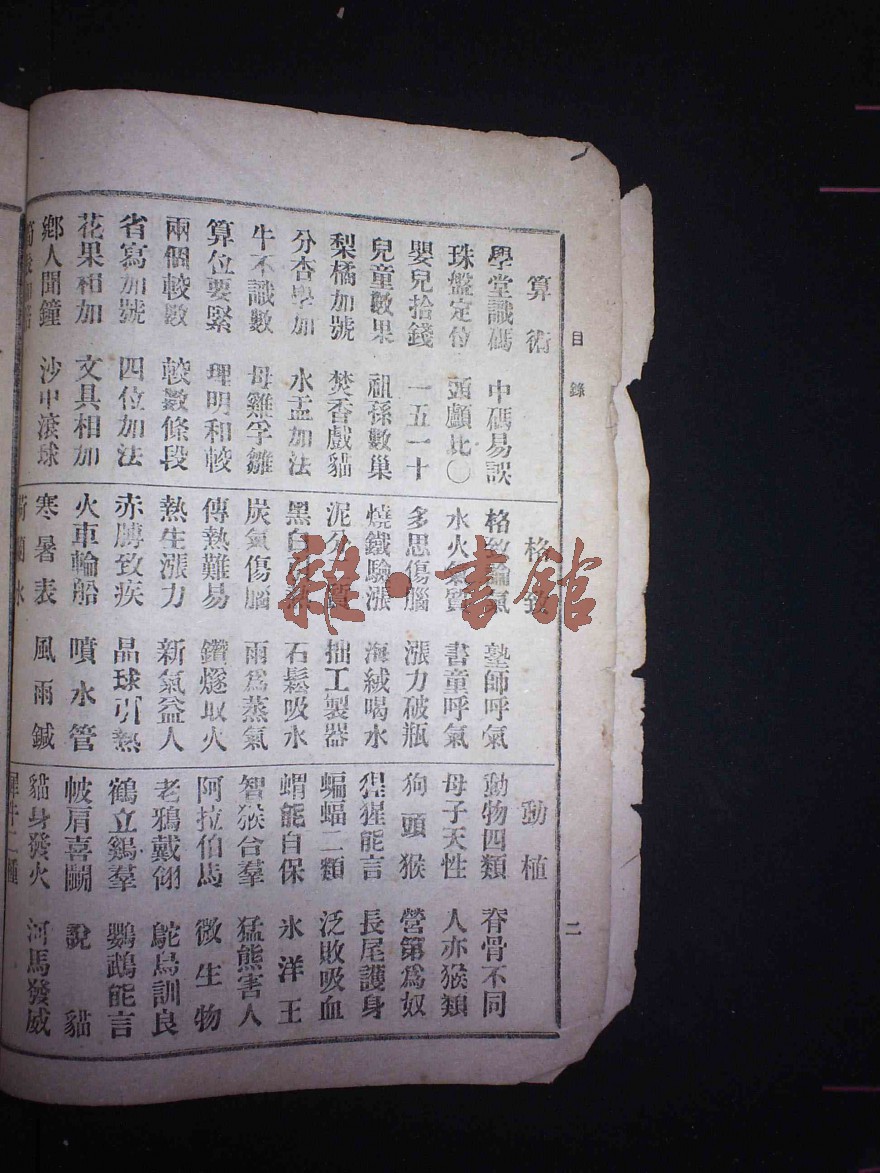 目錄
二
算術
學堂識碼 中碼易誤
珠盤定位 頭顱比〇
嬰兒拾錢 一五一十
兒童數果 祖孫數巢
梨橘加號 焚香戲貓
分杏學加 水盂加法
牛不識數 母雞孚雛
算位要緊 理明和較
兩個較數 較數條段
省寫加號 四位加法
花果相加 文具相加
鄉人聞鐘 沙中滾球
格致
格致論氣 塾師呼氣
水火氣質 書童呼氣
多思傷腦 漲力破瓶
燒鐵驗漲 海絨喝水
泥分 質 拙工製器
黑白 石鬆吸水
炭氣傷腦 雨爲蒸氣
傳熱難易 鑽燧取火
熱生漲力 新氣益人
赤膊致疾 晶球引熱
火車輪船 噴水管
寒暑表 風雨鍼
動植
動物四類 脊骨不同
母子天性 人亦猴類
狗頭猴 營第爲奴
猩猩能言 長尾護身
蝙蝠二類 泛敗吸血
蝟能自保 氷洋王
智猴合羣 猛熊害人
阿拉伯馬 微生物
老鴉戴翎 鴕鳥訓良
鶴立鷄羣 鸚鵡能言
帔肩喜鬭 說貓
貓身發火 河馬發威
犀牛二種
雜·書館